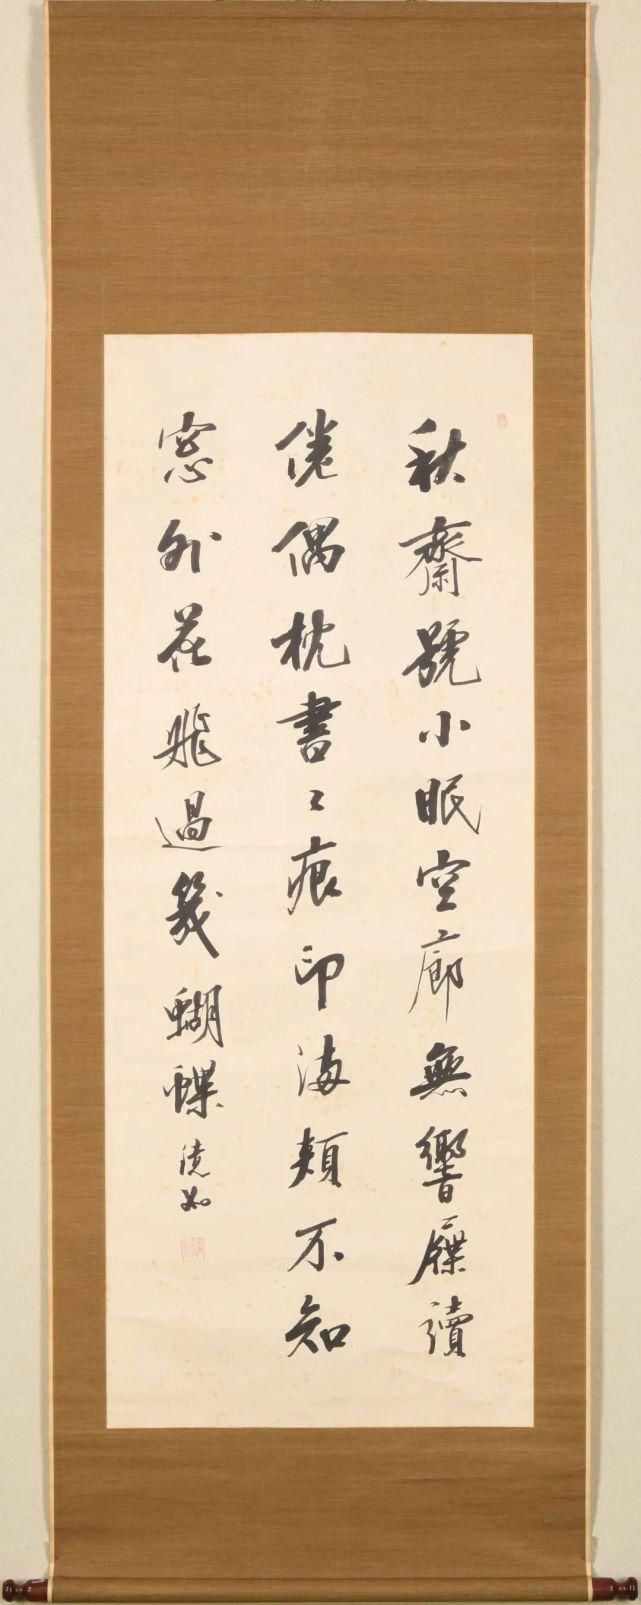 秋齋號小眠空廊無響屧讀
倦偶枕書〻痕印滿頰不知
窓外花飛過幾蝴蝶
澹如